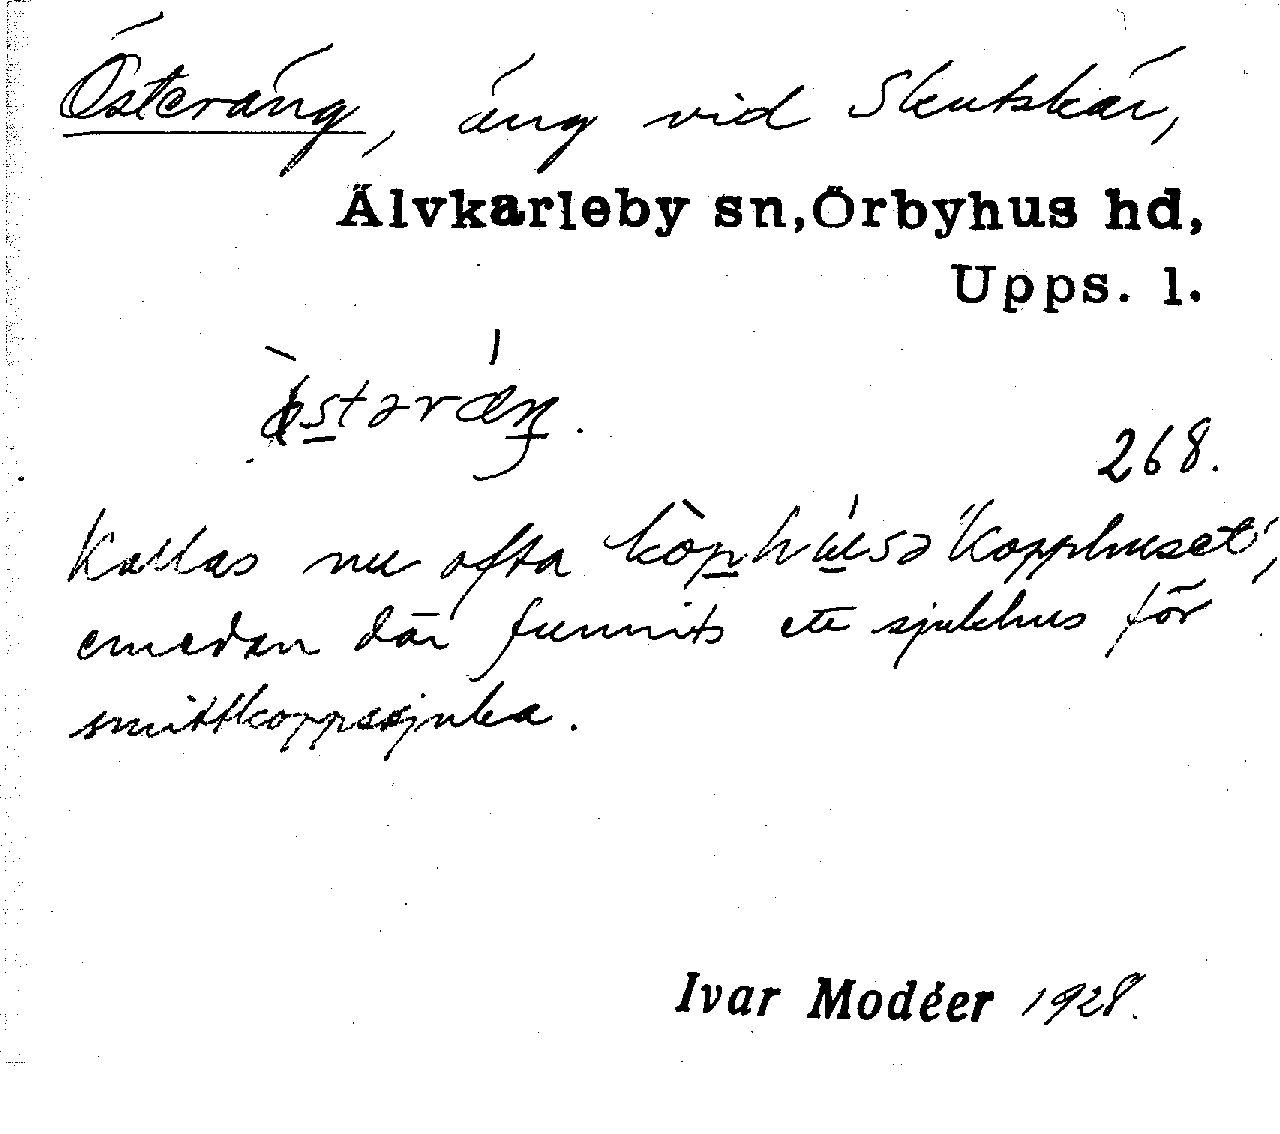 Österäng, äng vid Skutskär,
Älvkarleby sn, Örbyhus hd,
Upps. l.
østəræŋ.
268.
Kallas nu ofta kòphúsə "Kopphuset",
emedan där funnits ett sjukhus för
smittkoppssjuka.
Ivar Modéer 1928.